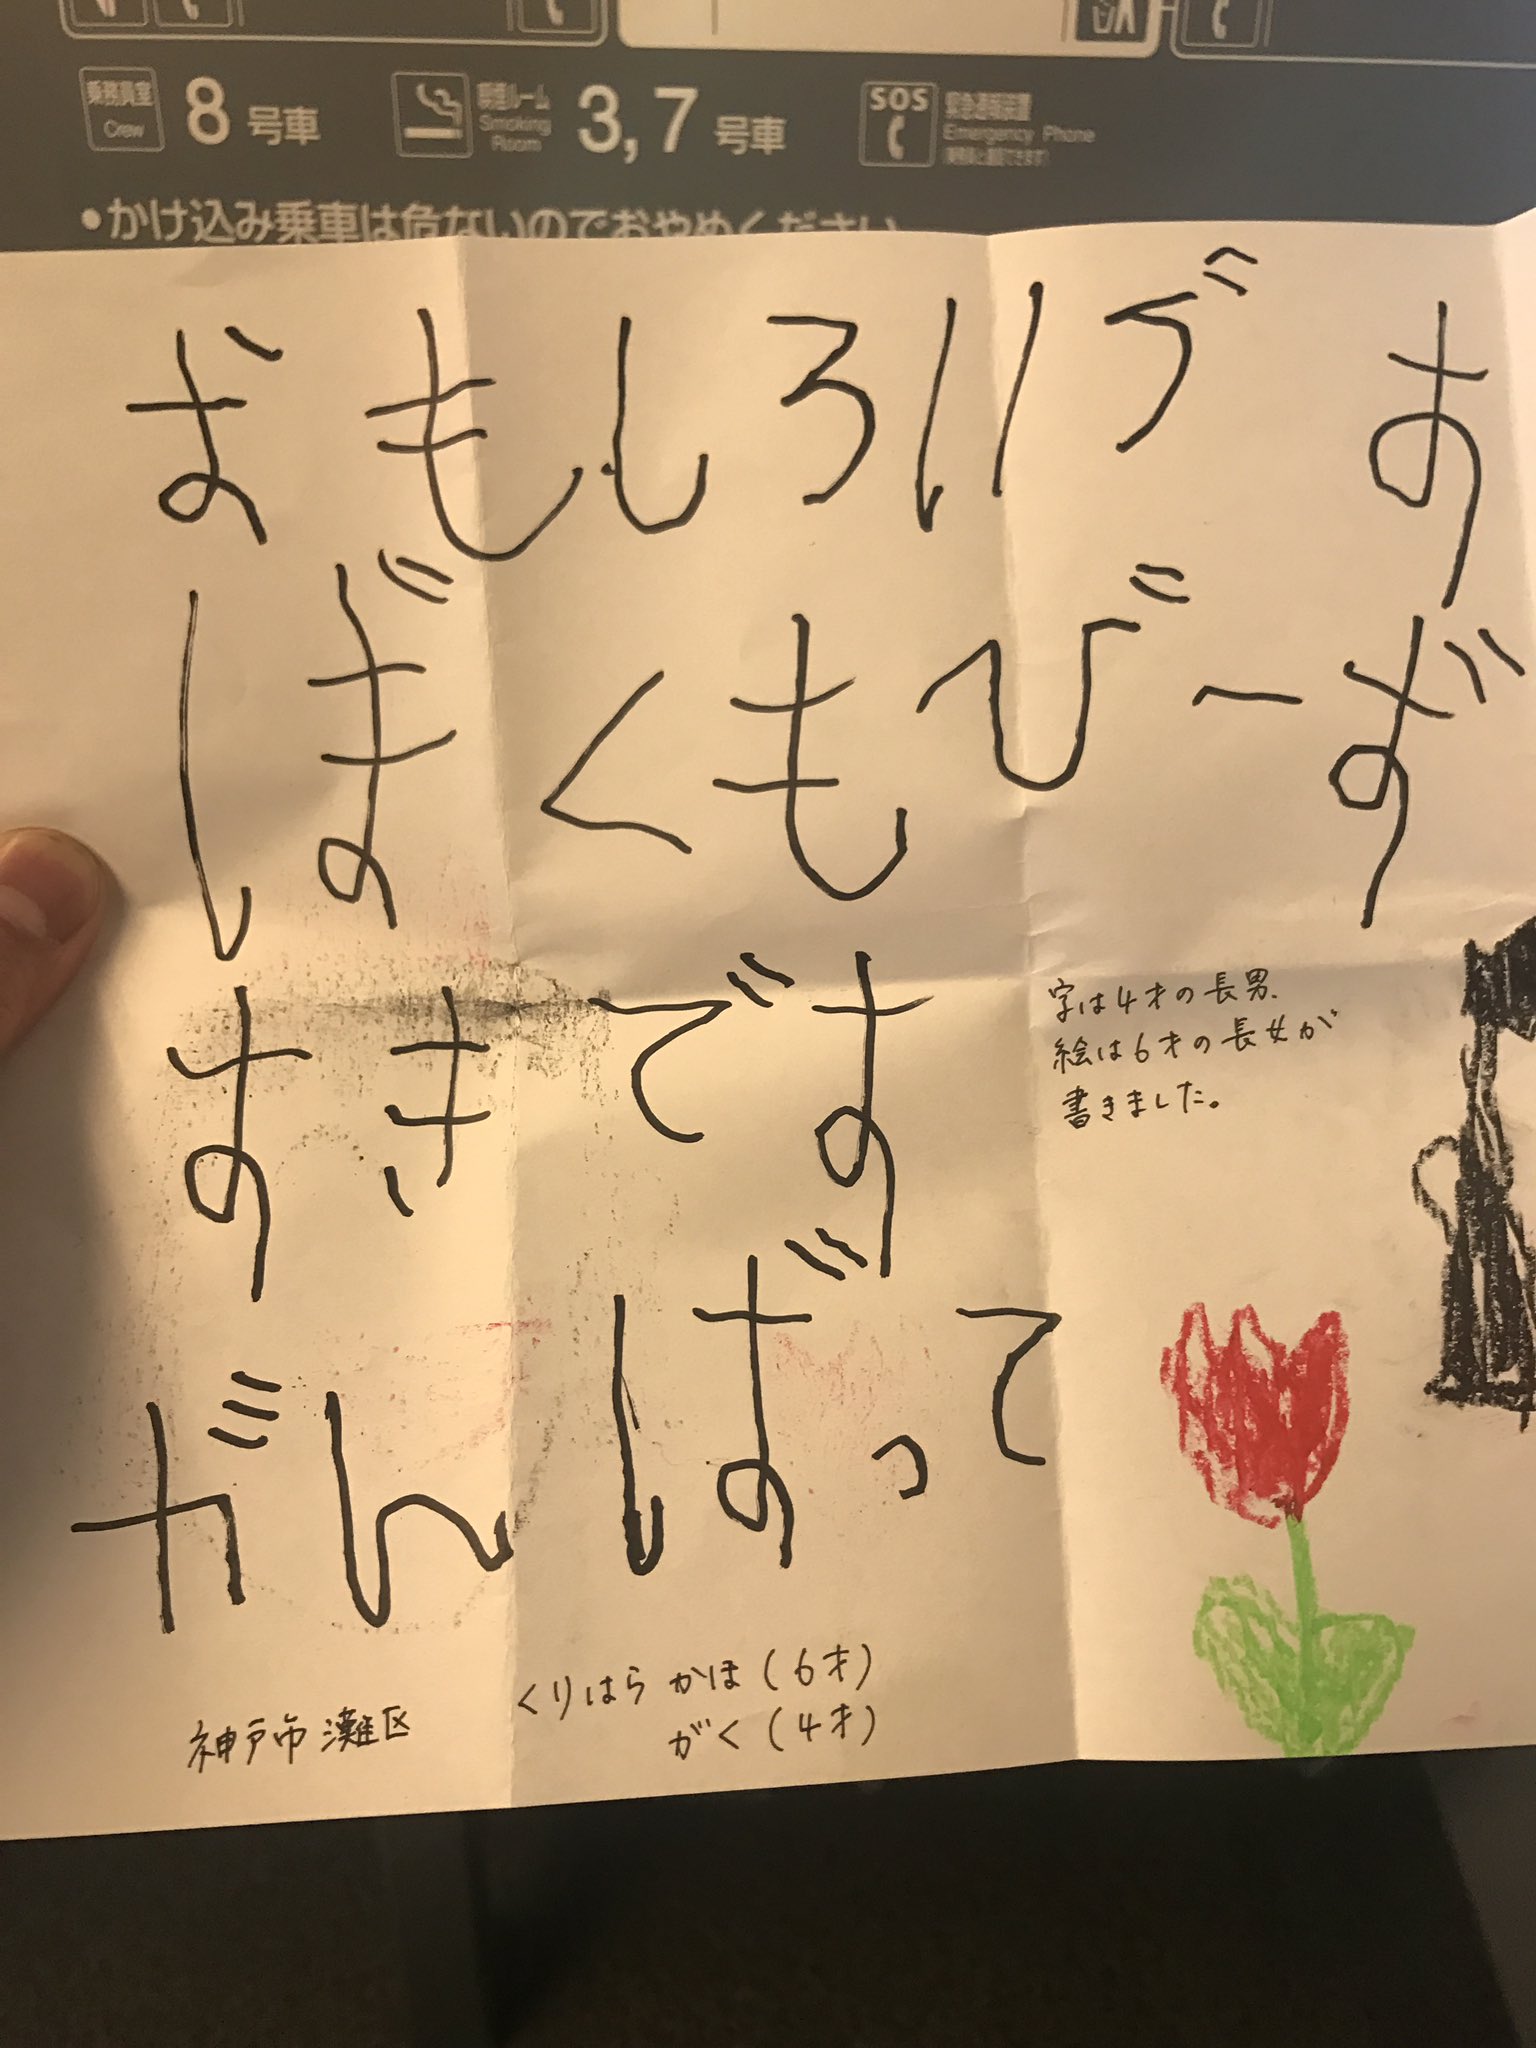 乗務員室
Crew
8号車
喫煙ルーム
Smoking
Room
3,7号車
SOS
緊急通報装置
Emergency Phone
(乗務員と通話できます)
•かけ込み乗車は危ないのでおやめください
おもしろいです
ぼくもびーず
すきです
がんばって
字は4才の長男、
絵は6才の長女が
書きました。
くりはら かほ(6才)
がく(4才)
神戸市灘区